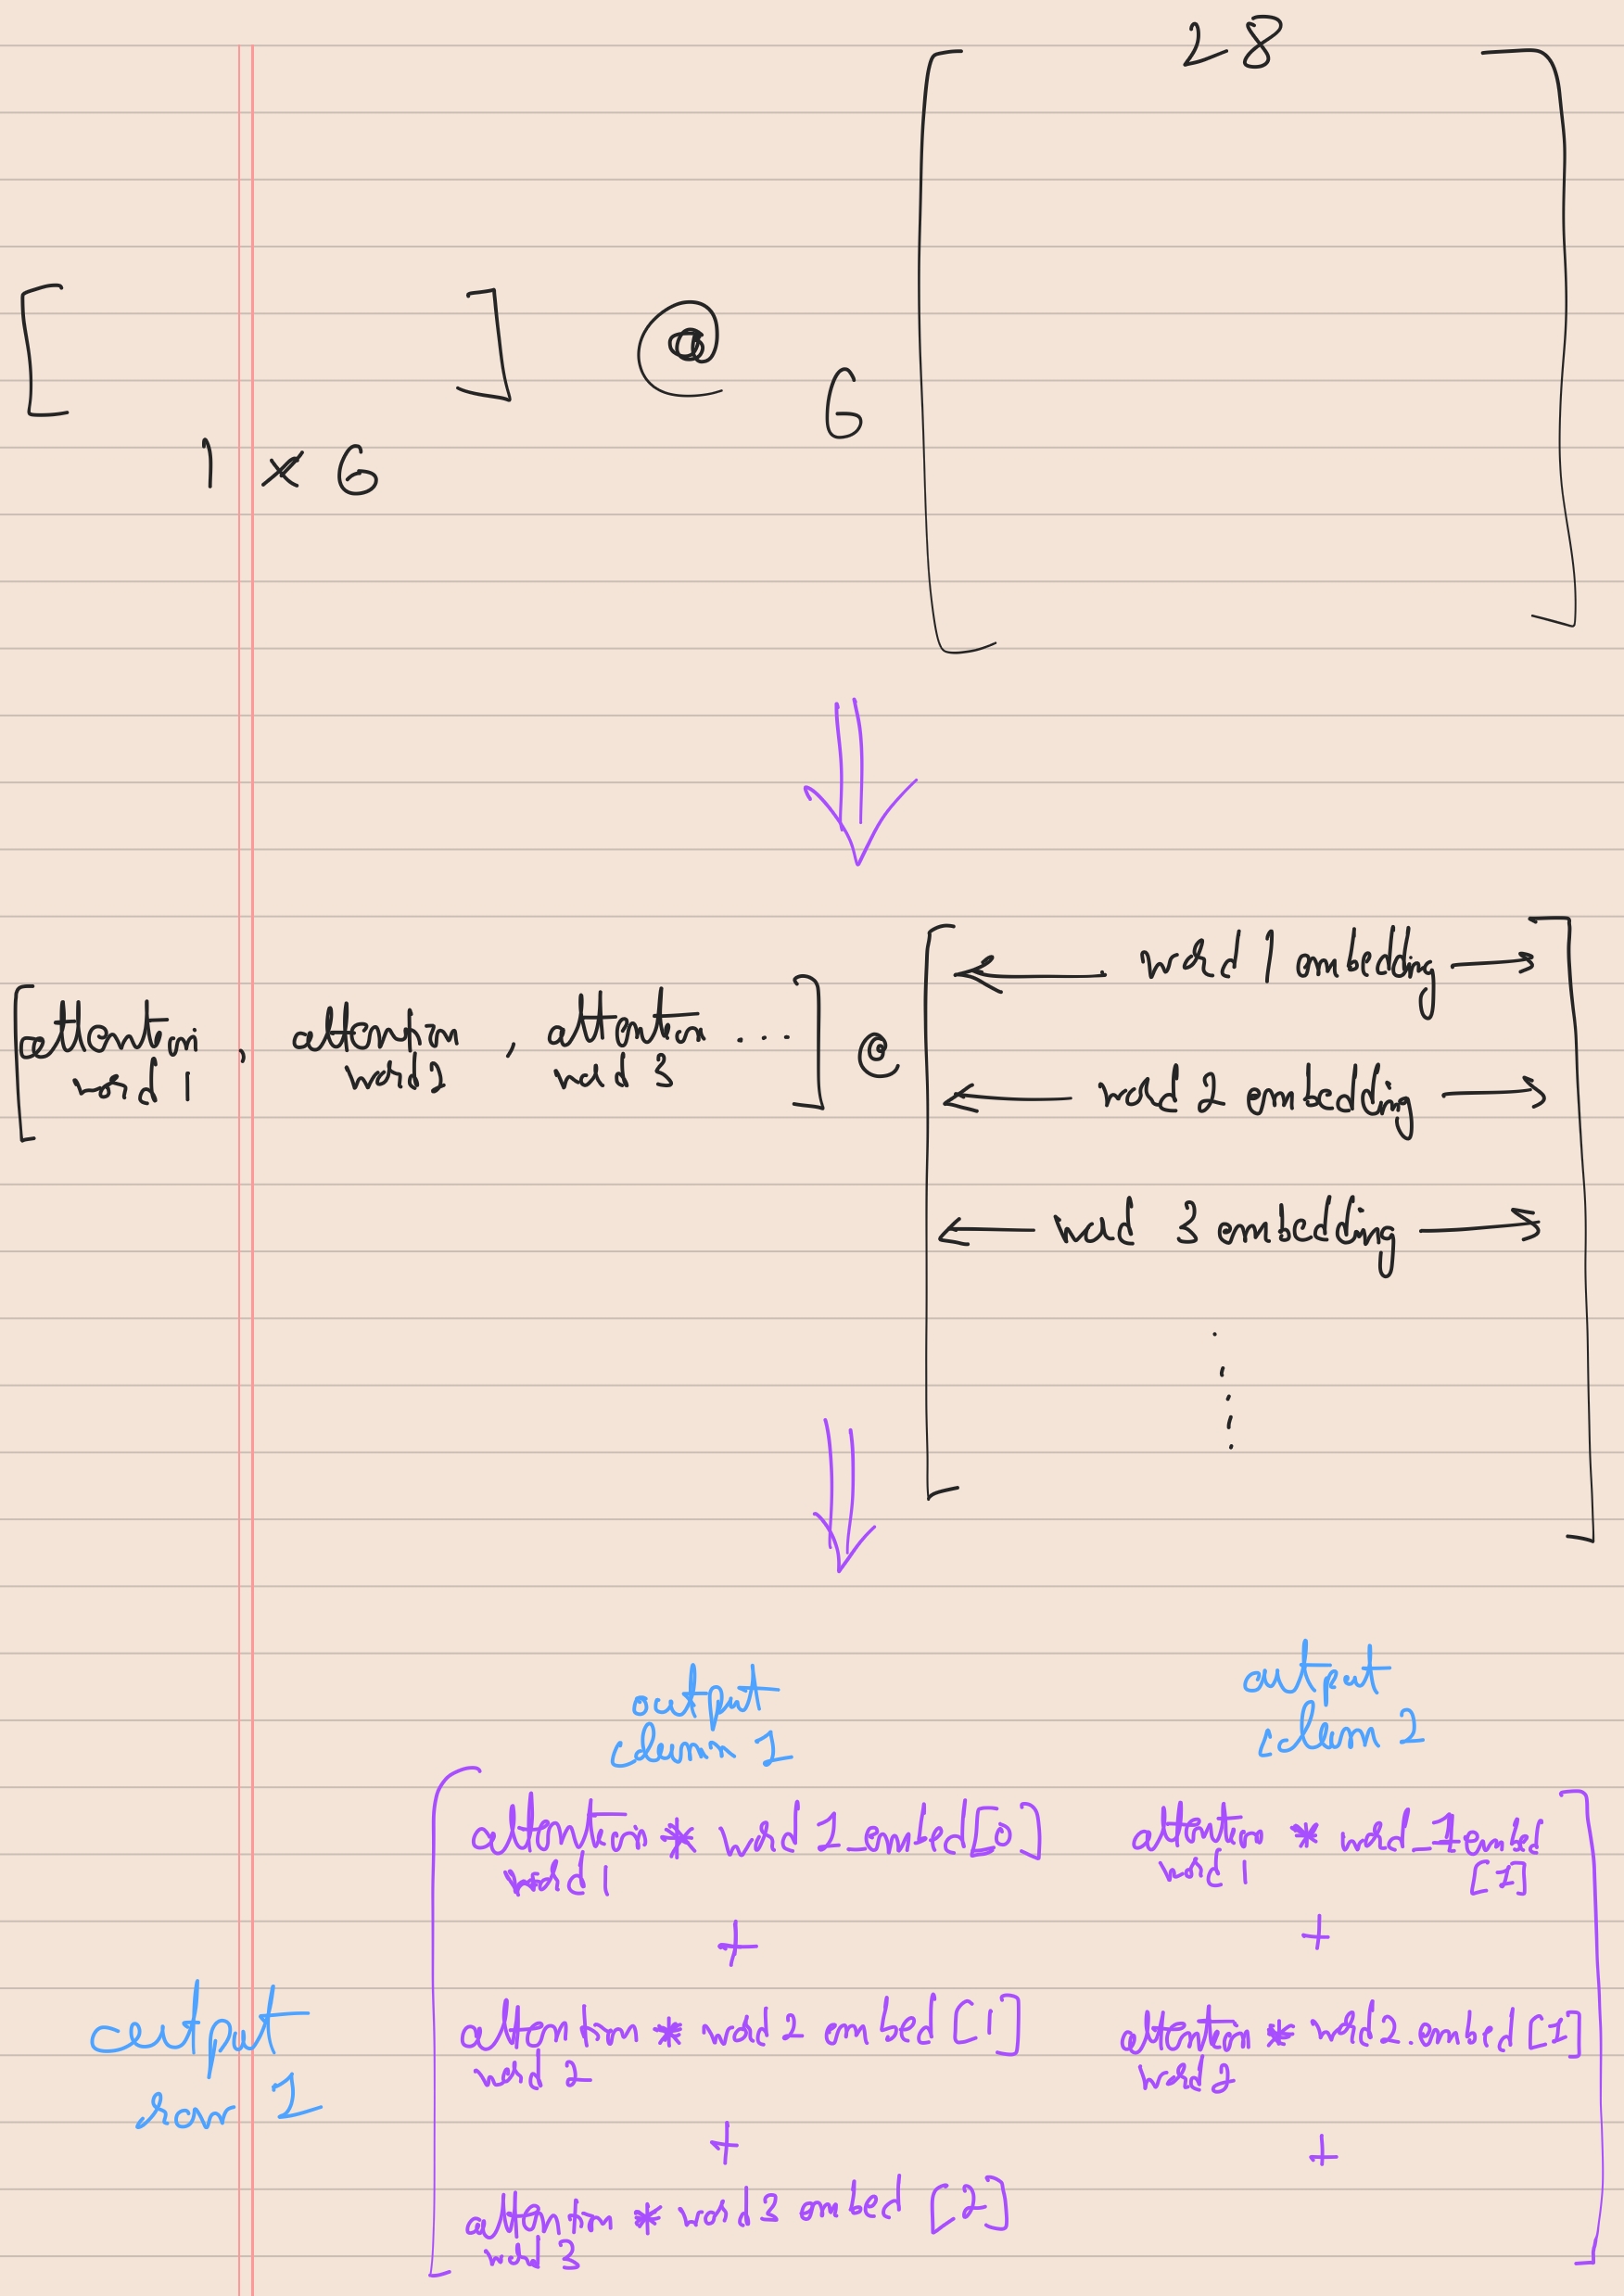 28
[ ] @ 6 [ ]
1 × 6
[attention word 1, attention word 2, attention word 3 ....] @
word 1 embedding
word 2 embedding
word 3 embedding
output column 1
output column 2
attention word 1 * word 1_embed[0]
attention word 1 * word_1 embed [1]
+ +
output row 1
attention word 2 * word 2 embed [1]
attention word 2 * word 2.embed [1]
+ +
attention word 3 * word 3 embed [2]